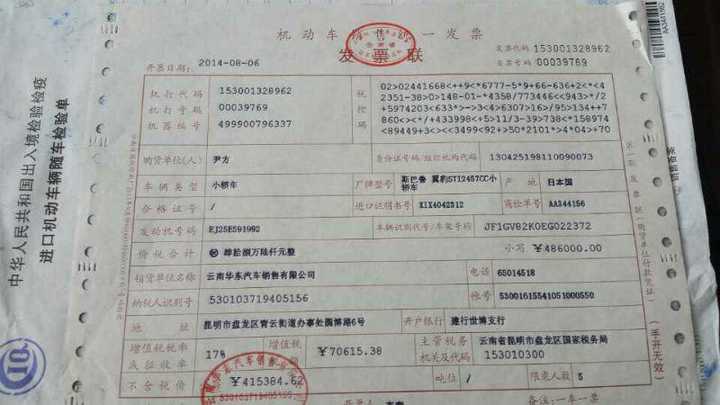 机动车销售统一发票
发票联
发票代码 153001328962
开票日期: 2014-08-06
发票号码 00039769
机打代码 153001328962
机打号码 00039769
机器编号 499900796337
税控码
02>02441668<++9<*6777-5*9+66-636+2<*<4
2351-38>0>148-01-*4358/773446<<943>*/2
+5974203<633*>->3<4>6307>16>/95>134++7
860<><*/+433998<+5>11/3-39>738<*158974
<89449+3><><3499<92+>50*2101*>4*04>+70
购货单位(人) 尹方
身份证号码/组织机构代码 130425198110090073
车辆类型 小轿车
厂牌型号 斯巴鲁 翼豹STI2457CC小轿车
产地 日本国
合格证号 /
进口证明书号 KIX4042512
商检单号 AA344156
发动机号码 EJ25E591992
车辆识别代号/车架号码 JF1GV82K0EG022372
价税合计 ⊗ 肆拾捌万陆仟元整
小写 ¥486000.00
销货单位名称 云南华东汽车销售有限公司
电话 65014518
纳税人识别号 530103719405156
账号 53001615541051000550
地址 昆明市盘龙区青云街道办事处园博路6号
开户银行 建行世博支行
增值税税率或征收率 17%
增值税 ¥70615.38
主管税务机关及代码 云南省昆明市盘龙区国家税务局
153010300
不含税价 ¥415384.62
吨位 /
限乘人数 5
530103719405156
备注:一车一票
第一联 发票联 (购货单位付款凭证)
(手开无效)
中华人民共和国出入境检验检疫
进口机动车辆随车检验单